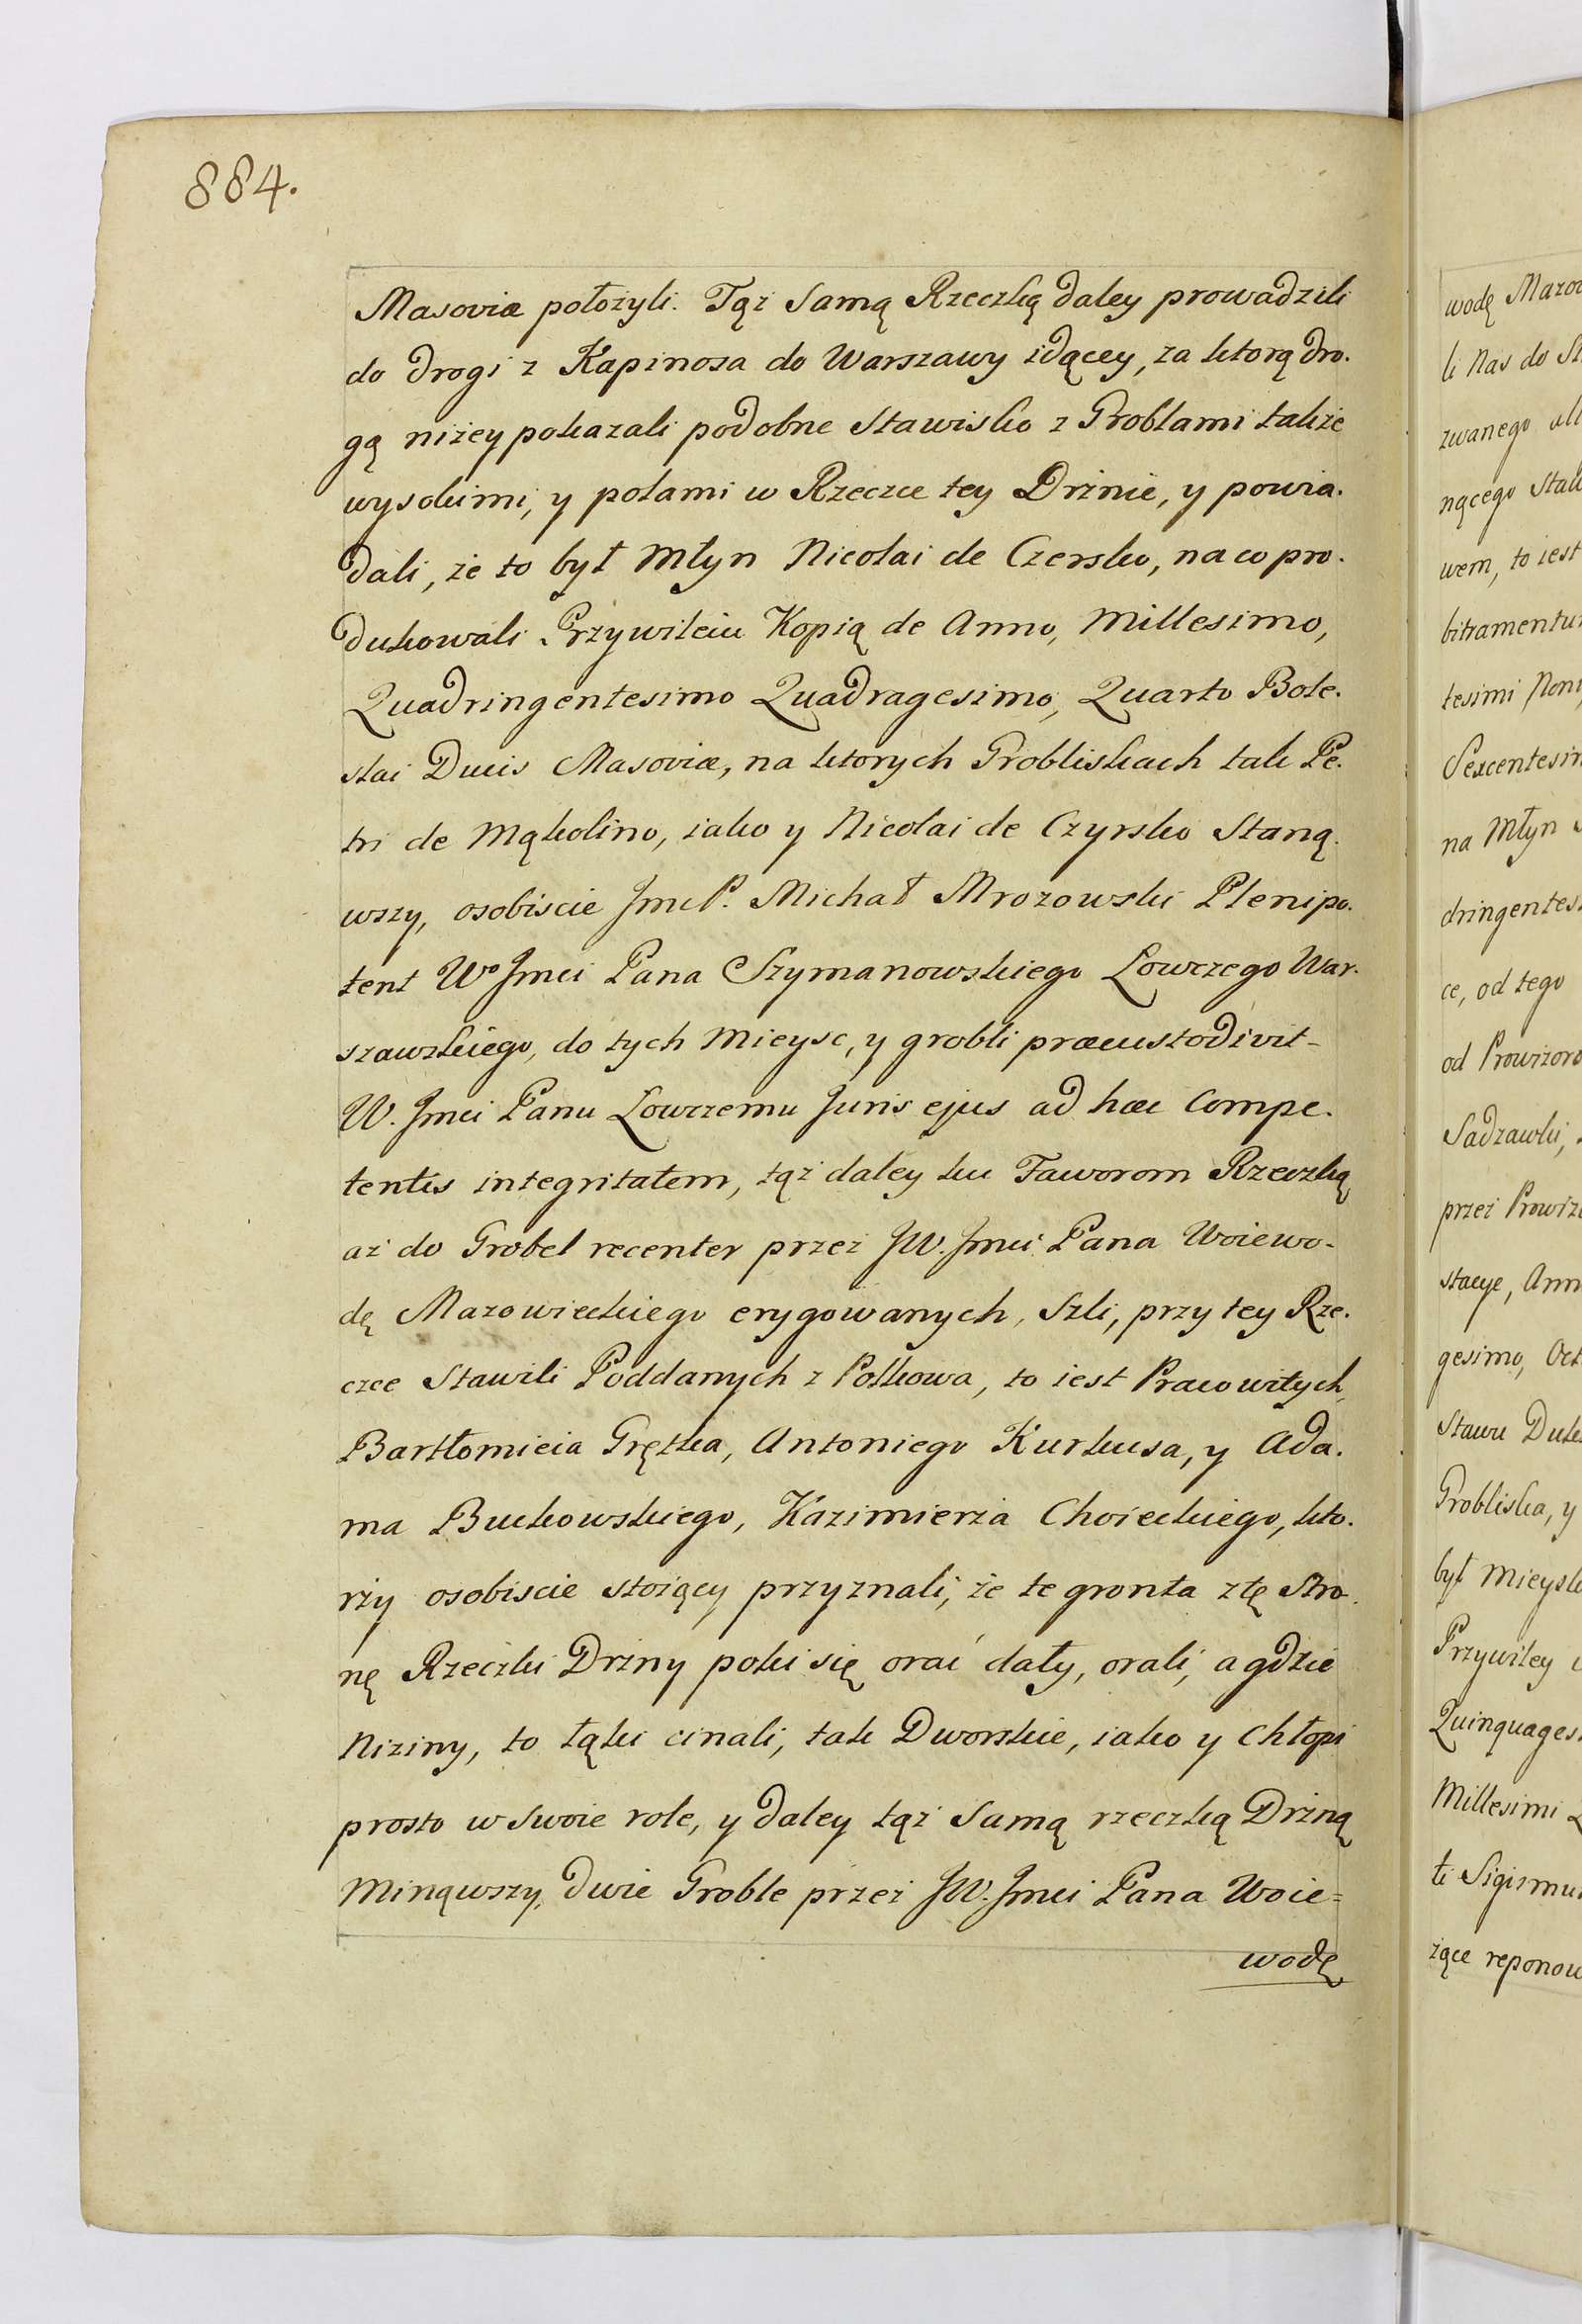 884.
Masoviæ położyli. Tąż Samą Rzeczką daley prowadzili
do drogi z Kapinosa do Warszawy idącey, za ktorą dro.
gą niżey pokazali podobne Stawisko z Groblami także
wysokimi, y polami w Rzeczce tey Drżnie, y powia.
dali, że to był Młyn Nicolai de Czersko, na co pro.
dukowali Przywileiu Kopią de Anno, Millesimo,
Quadringentesimo Quadragesimo, Quarto Bole.
slai Ducis Masoviæ, na ktorych Grobliskach tak Pe.
tri de Mąkolino, iako y Nicolai de Czyrsko Staną.
wszy, osobiscie JmcP. Michał Mrozowski Plenipo.
tent Wo Jmci Pana Szymanowskiego Łowczego War.
szawskiego, do tych Mieysc, y grobli præcustodivit-
W. Jmci Panu Łowczemu Juris ejus ad hæc Compe.
tentis integritatem, tąż daley ku Faworom Rzeczką
aż do Grobel recenter przez JW. Jmci Pana Woiewo-
dę Mazowieckiego erygowanych, Szli, przy tey Rze.
czce Stawili Poddanych z Polkowa, to iest Pracowitych,
Bartłomieia Grętka, Antoniego Kurkusa, y Ada.
ma Buckowskiego, Kazimierza Choieckiego, kto.
rzy osobiscie stoiący przyznali, że te gronta z tę Stro.
nę Rzeczki Drżny poki się orać dały, orali, a gdzie
Niziny, to łąki cinali, tak Dworskie, iako y Chłopi
prosto w Swoie role, y daley tąż Samą rzeczką Drżną
Minąwszy, dwie Groble przez JW. Jmci Pana Woie=
wodę
wodę
li Nas do
zwanego
nącego
wem, to iest
na Młyn
ce, od tego
od
Sadzawki,
przez
stacye,
gesimo,
Stawu
Grobliska, y
był
Przywiley
Millesimi